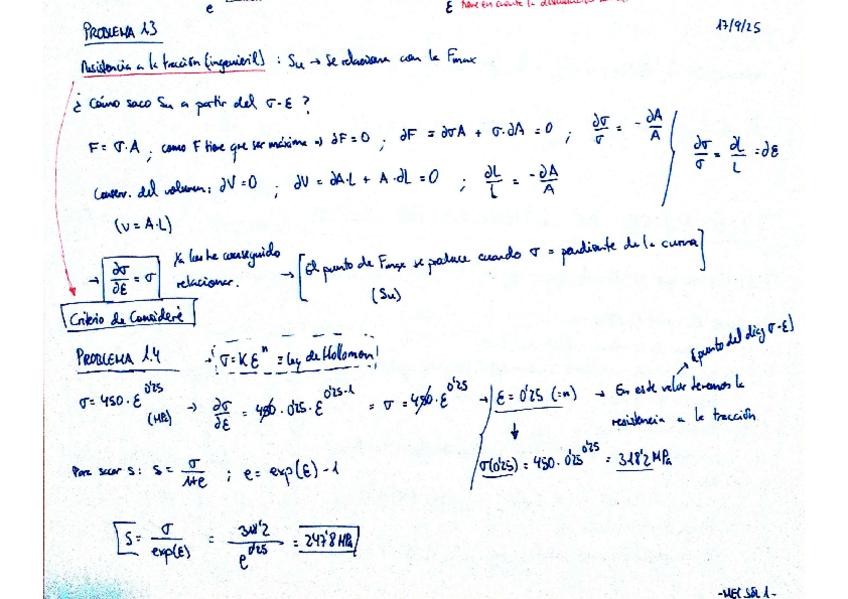 e
ε tiene en cuenta la
17/9/25
PROBLEMA 1.3
Resistencia a la tracción (ingenieril) : Su → Se relaciona con la Fmax
¿ Cómo saco Su a partir del σ-ε ?
F = σ·A ; como F tiene que ser máxima ⇒ ∂F=0 ; ∂F = ∂σA + σ·∂A = 0 ; ∂σ/σ = -∂A/A
∂σ/σ = ∂L/L = ∂ε
Conserv. del volumen: ∂V=0 ; ∂V = ∂A·L + A·∂L = 0 ; ∂L/L = -∂A/A
(V=A·L)
→ ∂σ/∂ε = σ Ya las he conseguido relacionar. → [El punto de Fmax se produce cuando σ = pendiente de la curva]
(Su)
Criterio de Considère
PROBLEMA 1.4 → σ=Kε^n ≡ Ley de Hollomon!
(punto del diag σ-ε)
σ=450·ε^0'25 (MPa) → ∂σ/∂ε = 450·0'25·ε^0'25-1 = σ = 450·ε^0'25 → ε=0'25 (=n) → En este valor tenemos la
resistencia a la tracción
σ(0'25) = 450·0'25^0'25 = 318'2 MPa
Para sacar s: s = σ/1+e ; e = exp(ε)-1
S = σ/exp(ε) = 318'2/e^0'25 = 247'8 MPa
-MEC SÓL 1-